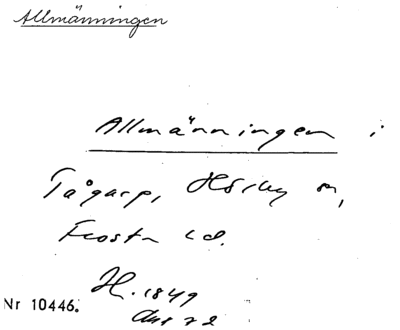 Allmänningen
Allmänningen i
Tågarp, Hörby sn,
Frosta hd.
H. 1849
Nr 10446.